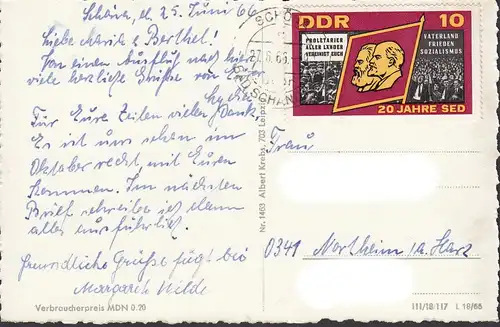 Schöna, d. 25. Juni 66
Liebe Maria u. Berthel!
Von einem Ausflug nach hier
viele herzliche Grüße von Eurer
Für Eure Zeilen vielen Dank.
Es ist uns schon im
Oktober recht, mit Euren
Kommen. Im nächsten
Brief schreiben ich dann
alles ausführlich.
Freundliche Grüße fügt bei
Margaret Wilde
Verbraucherpreis MDN 0.20
Nr. 1463 Albert Krebs, 703 Leipzig
SCHÖ
27.6.66
DDR 10
PROLETARIER
ALLER LÄNDER
VEREINIGT EUCH
VATERLAND
FRIEDEN
SOZIALISMUS
20 JAHRE SED
Frau
0341 Northeim a. Harz
III/18/117 L 18/66